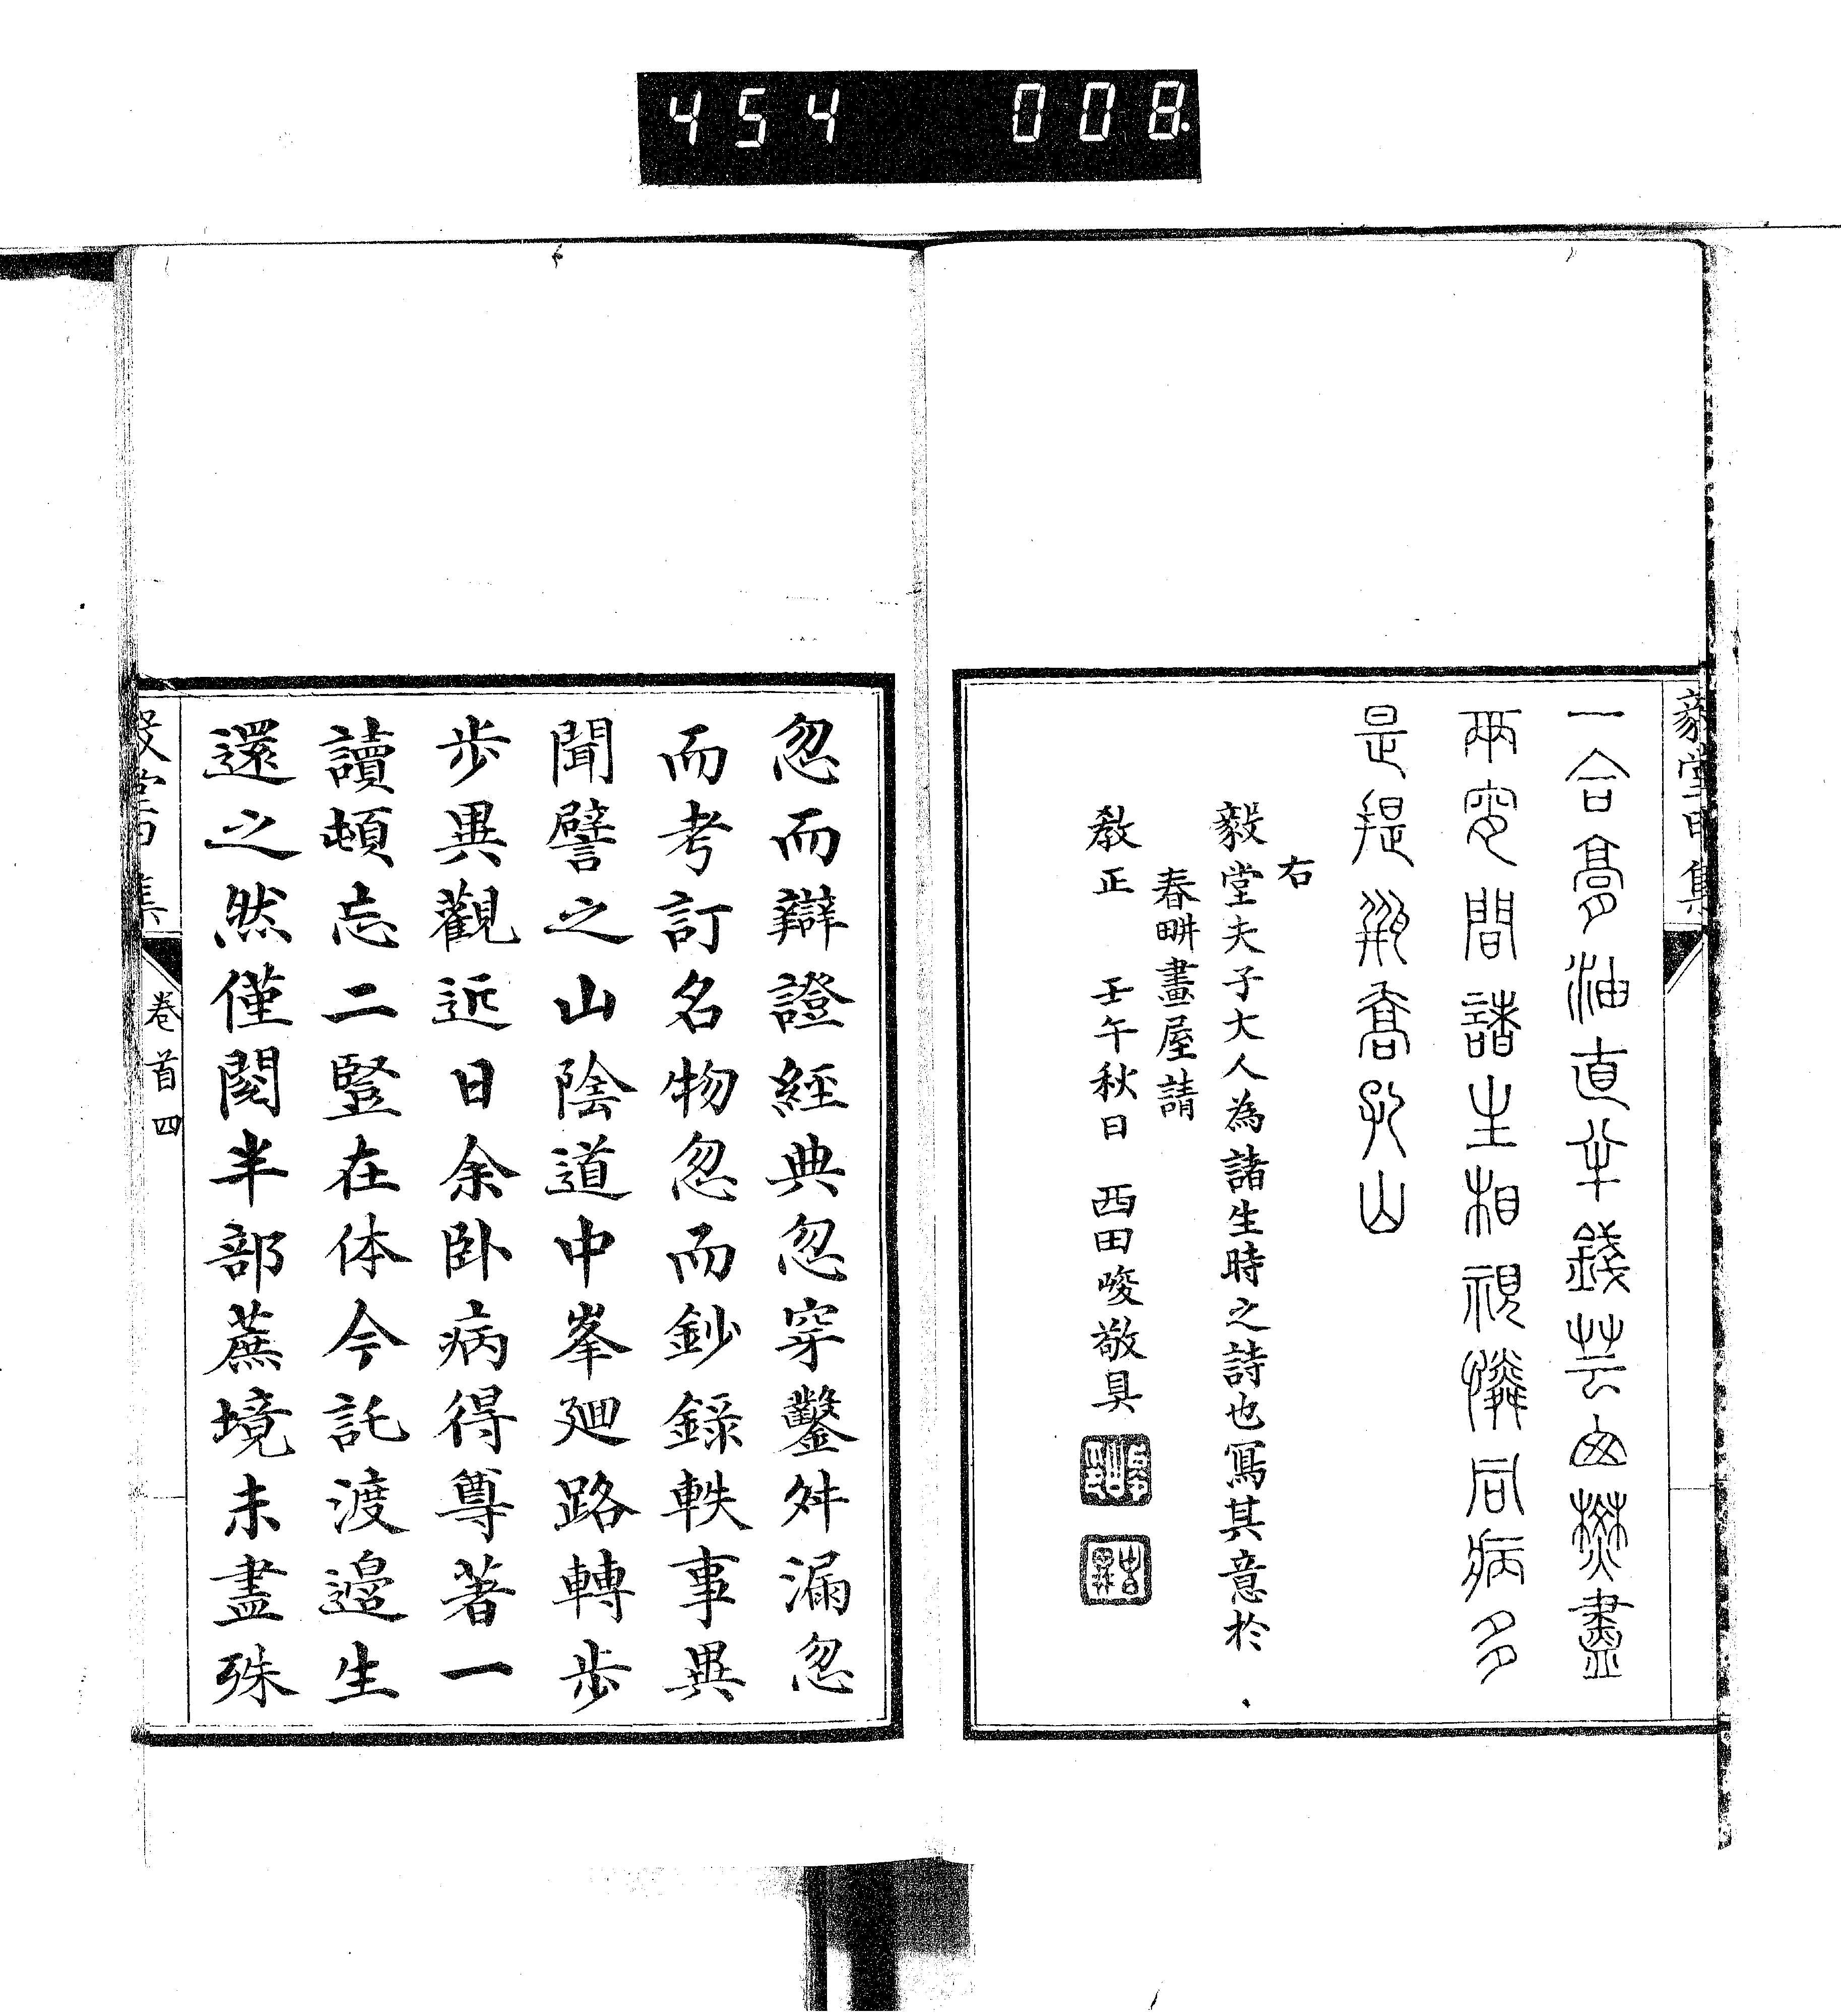 454 008
毅堂丙集
一合膏油直半錢芸囱焚盡
兩閒諸生相視憐同病多
是提瓶喬孔山
右
毅堂夫子大人為諸生時之詩也寫其意於
春畊畫屋請
教正 壬午秋日 西田峻敬具
忽而辯證經典忽穿鑿舛漏忽
而考訂名物忽而鈔錄軼事異
聞譬之山陰道中峯廻路轉歩
歩異觀近日余卧病得尊著一
讀頓忘二豎在体今託渡邉生
還之然僅閱半部蔗境未盡殊
毅堂丙集 卷首 四